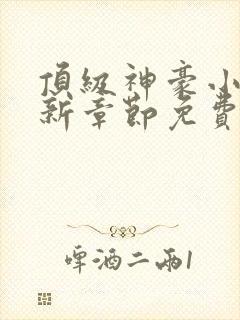 頂級神豪小
新章節免費
啤酒二兩1